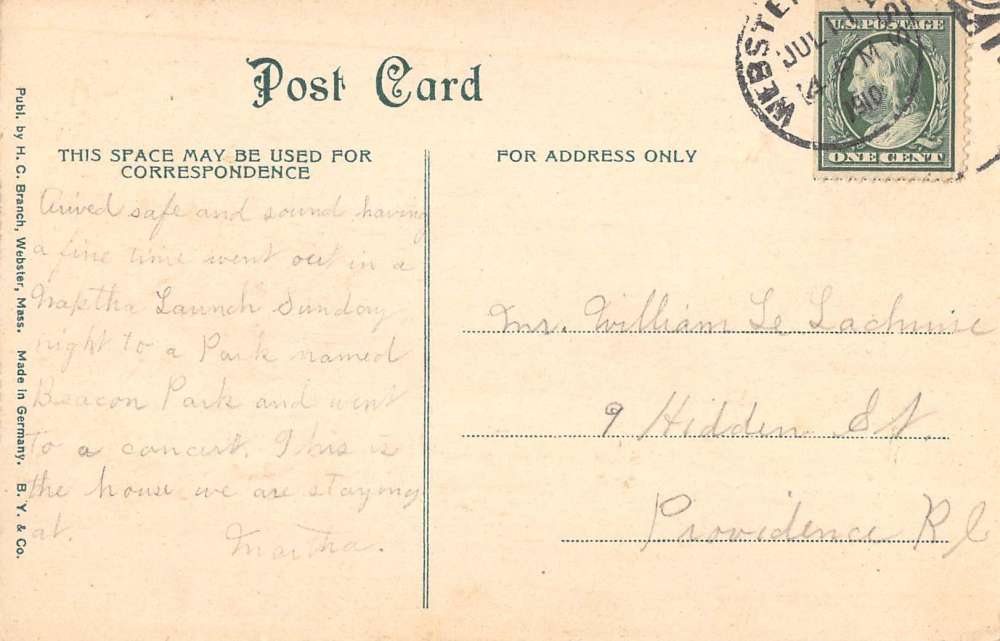 Post Card
THIS SPACE MAY BE USED FOR
CORRESPONDENCE
FOR ADDRESS ONLY
Publ. by H. C. Branch, Webster, Mass. Made in Germany. B. Y. & Co.
WEBSTE
JUL
M
1910
U.S. POSTAGE
ONE CENT
Arived safe and sound having
a fine time went out in a
Naptha Launch Sunday
night to a Park named
Beacon Park and went
to a concert. This is
the house we are staying
at.
Martha.
Mr. William Le
9 Hidden St.
Providence R I